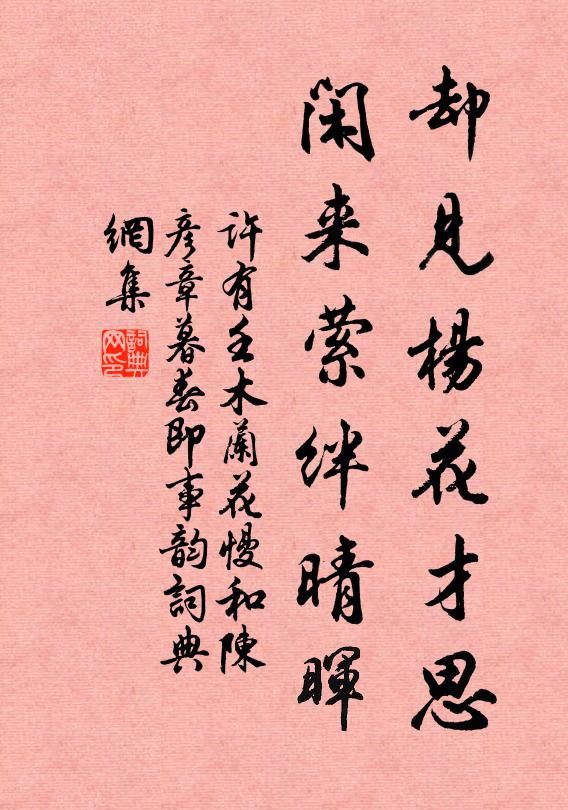 却見楊花才思
閑来縈絆晴暉
許有壬木蘭花慢和陳
彦章暮春即事韵詞典
網集
詞典
网印